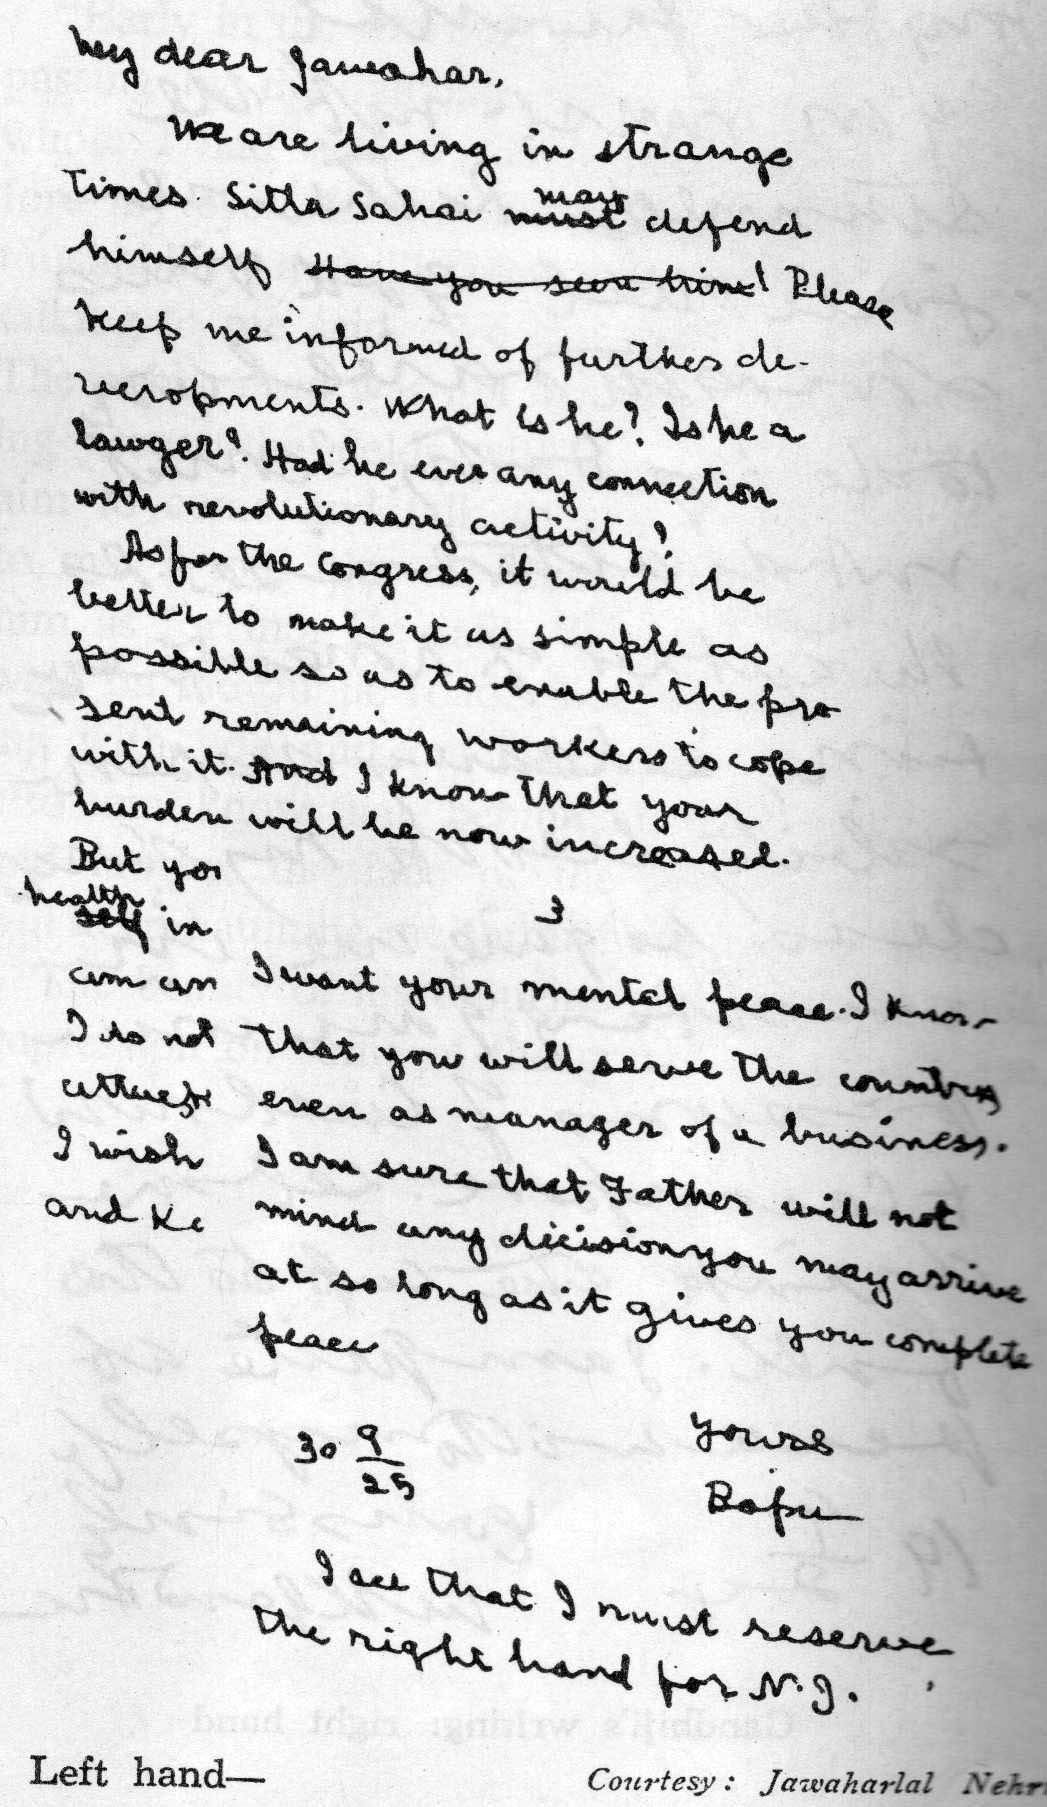 My dear Jawahar,
We are living in strange
times. Sitla Sahai must may defend
himself Have you seen him! Please
keep me informed of further de-
velopments. What is he? Is he a
lawyer? Had he ever any connection
with revolutionary activity?
As for the Congress, it would be
better to make it as simple as
possible so as to enable the pre
sent remaining workers to cope
with it. And I know that your
burden will be now increased.
But you
health
self in
I do not
I wish
and Ke
3
I want your mental peace. I know
that you will serve the country
even as manager of a business.
I am sure that Father will not
mind any decision you may arrive
at so long as it gives you complete
peace
30 9/25
Yours
Bapu
I see that I must reserve
the right hand for N. J.
Left hand—
Courtesy: Jawaharlal Nehr